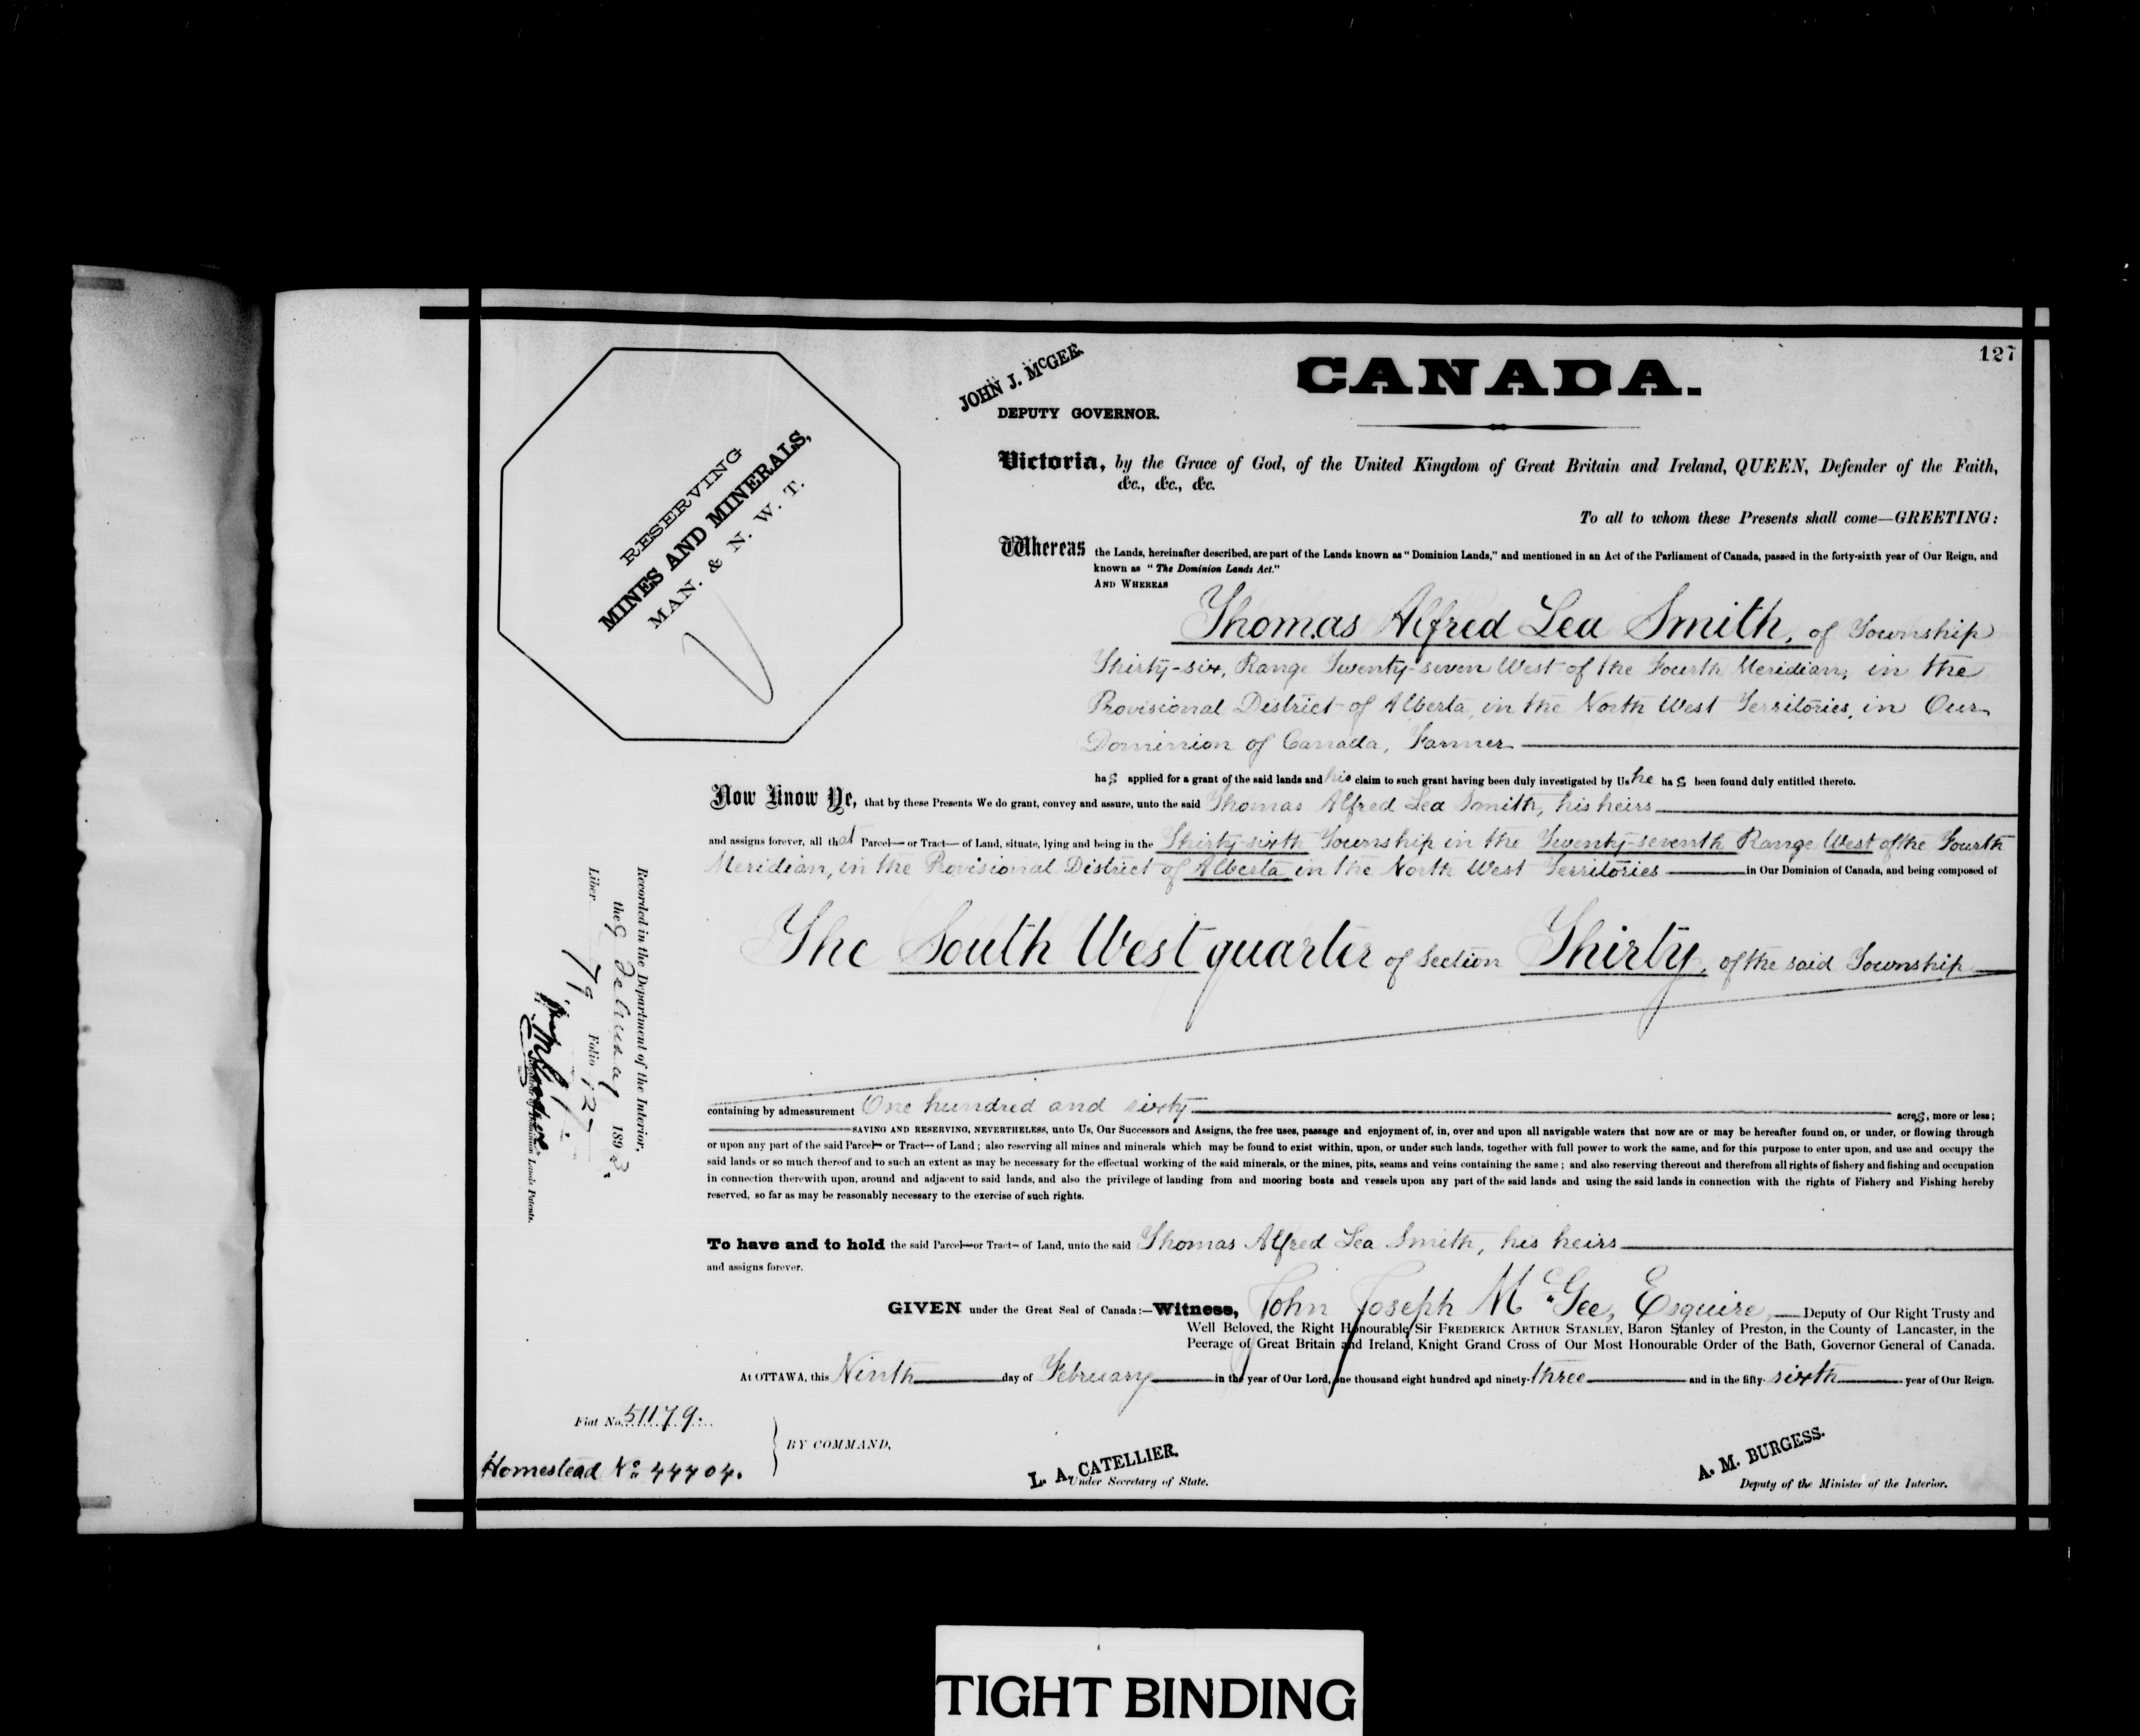 127
CANADA.
JOHN J. McGEE.
DEPUTY GOVERNOR.
RESERVING
MINES AND MINERALS,
MAN. & N. W. T.
Victoria, by the Grace of God, of the United Kingdom of Great Britain and Ireland, QUEEN, Defender of the Faith,
&c., &c., &c.
To all to whom these Presents shall come—GREETING:
Whereas the Lands, hereinafter described, are part of the Lands known as "Dominion Lands," and mentioned in an Act of the Parliament of Canada, passed in the forty-sixth year of Our Reign, and
known as "The Dominion Lands Act."
AND WHEREAS
Thomas Alfred Lea Smith, of Township
Thirty-six, Range Twenty-seven West of the Fourth Meridian, in the
Provisional District of Alberta, in the North West Territories, in Our
Dominion of Canada, Farmer
has applied for a grant of the said lands and his claim to such grant having been duly investigated by Us he has been found duly entitled thereto.
Now Know Ye, that by these Presents We do grant, convey and assure, unto the said Thomas Alfred Lea Smith, his heirs
and assigns forever, all that Parcel— or Tract— of Land, situate, lying and being in the Thirty-sixth Township in the Twenty-seventh Range West of the Fourth
Meridian, in the Provisional District of Alberta in the North West Territories in Our Dominion of Canada, and being composed of
The South West quarter of Section Thirty, of the said Township
containing by admeasurement One hundred and sixty acres, more or less;
SAVING AND RESERVING, NEVERTHELESS, unto Us, Our Successors and Assigns, the free uses, passage and enjoyment of, in, over and upon all navigable waters that now are or may be hereafter found on, or under, or flowing through
or upon any part of the said Parcel— or Tract— of Land; also reserving all mines and minerals which may be found to exist within, upon, or under such lands, together with full power to work the same, and for this purpose to enter upon, and use and occupy the
said lands or so much thereof and to such an extent as may be necessary for the effectual working of the said minerals, or the mines, pits, seams and veins containing the same; and also reserving thereout and therefrom all rights of fishery and fishing and occupation
in connection therewith upon, around and adjacent to said lands, and also the privilege of landing from and mooring boats and vessels upon any part of the said lands and using the said lands in connection with the rights of Fishery and Fishing hereby
reserved, so far as may be reasonably necessary to the exercise of such rights.
To have and to hold the said Parcel—or Tract— of Land, unto the said Thomas Alfred Lea Smith, his heirs
and assigns forever.
GIVEN under the Great Seal of Canada:—Witness, John Joseph McGee, Esquire, Deputy of Our Right Trusty and
Well Beloved, the Right Honourable Sir FREDERICK ARTHUR STANLEY, Baron Stanley of Preston, in the County of Lancaster, in the
Peerage of Great Britain and Ireland, Knight Grand Cross of Our Most Honourable Order of the Bath, Governor General of Canada.
At OTTAWA, this Ninth day of February in the year of Our Lord, one thousand eight hundred and ninety-three and in the fifty-sixth year of Our Reign.
Fiat No. 51179.
Homestead No 44704.
BY COMMAND,
L. A. CATELLIER.
Under Secretary of State.
A. M. BURGESS.
Deputy of the Minister of the Interior.
Recorded in the Department of the Interior,
the 9 February 1893,
Liber 79 Folio 127
Dominion Lands Patents.
TIGHT BINDING